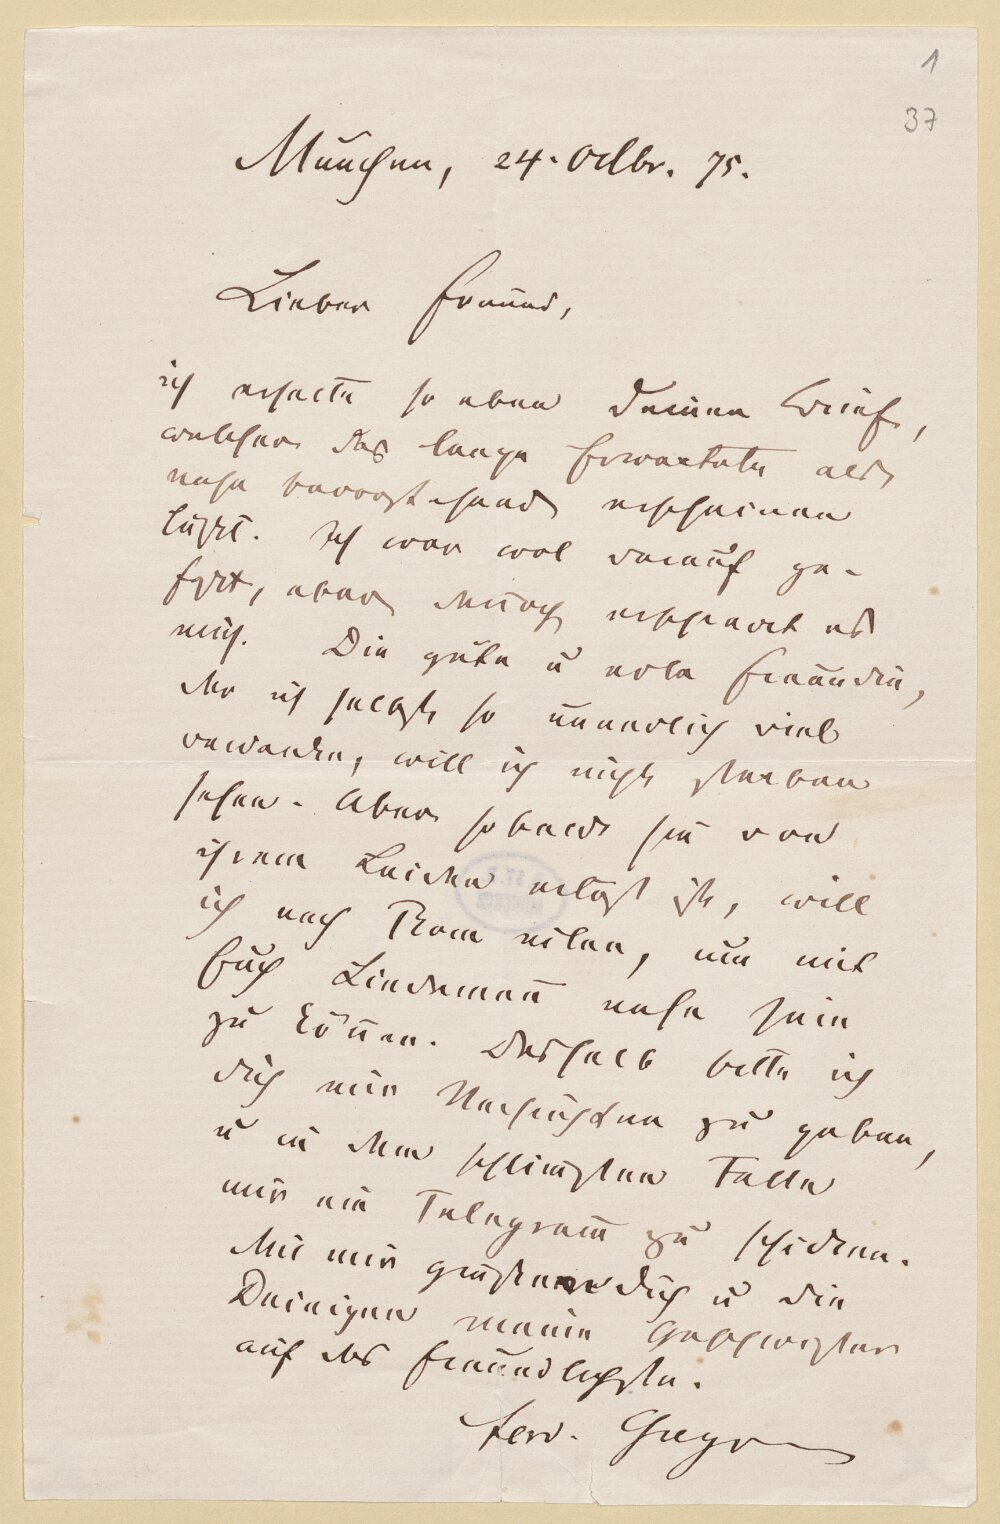 1
37
München, 24. Octbr. 75.
Lieber Freund,
ich erhalte so eben Deinen Brief,
welcher das lange Erwartete als
nahe bevorstehend erscheinen
läßt. Ich war wol darauf ge-
faßt, aber dennoch erschreckt es
mich. Die gute u edle Freundin,
der ich selbst so unendlich viel
verdanke, will ich nicht sterben
sehen. Aber sobald sie von
ihrem Leiden erlöst ist, will
ich nach Rom eilen, um mit
Euch Lindemann nahe sein
zu können. Deshalb bitte ich
dich mir Nachrichten zu geben,
u in dem schlimsten Falle
mir ein Telegramm zu schicken.
Mit mir grüßen Dich u die
Deinigen meine Geschwister
auf das freundlichste.
Ferd. Gregorovius